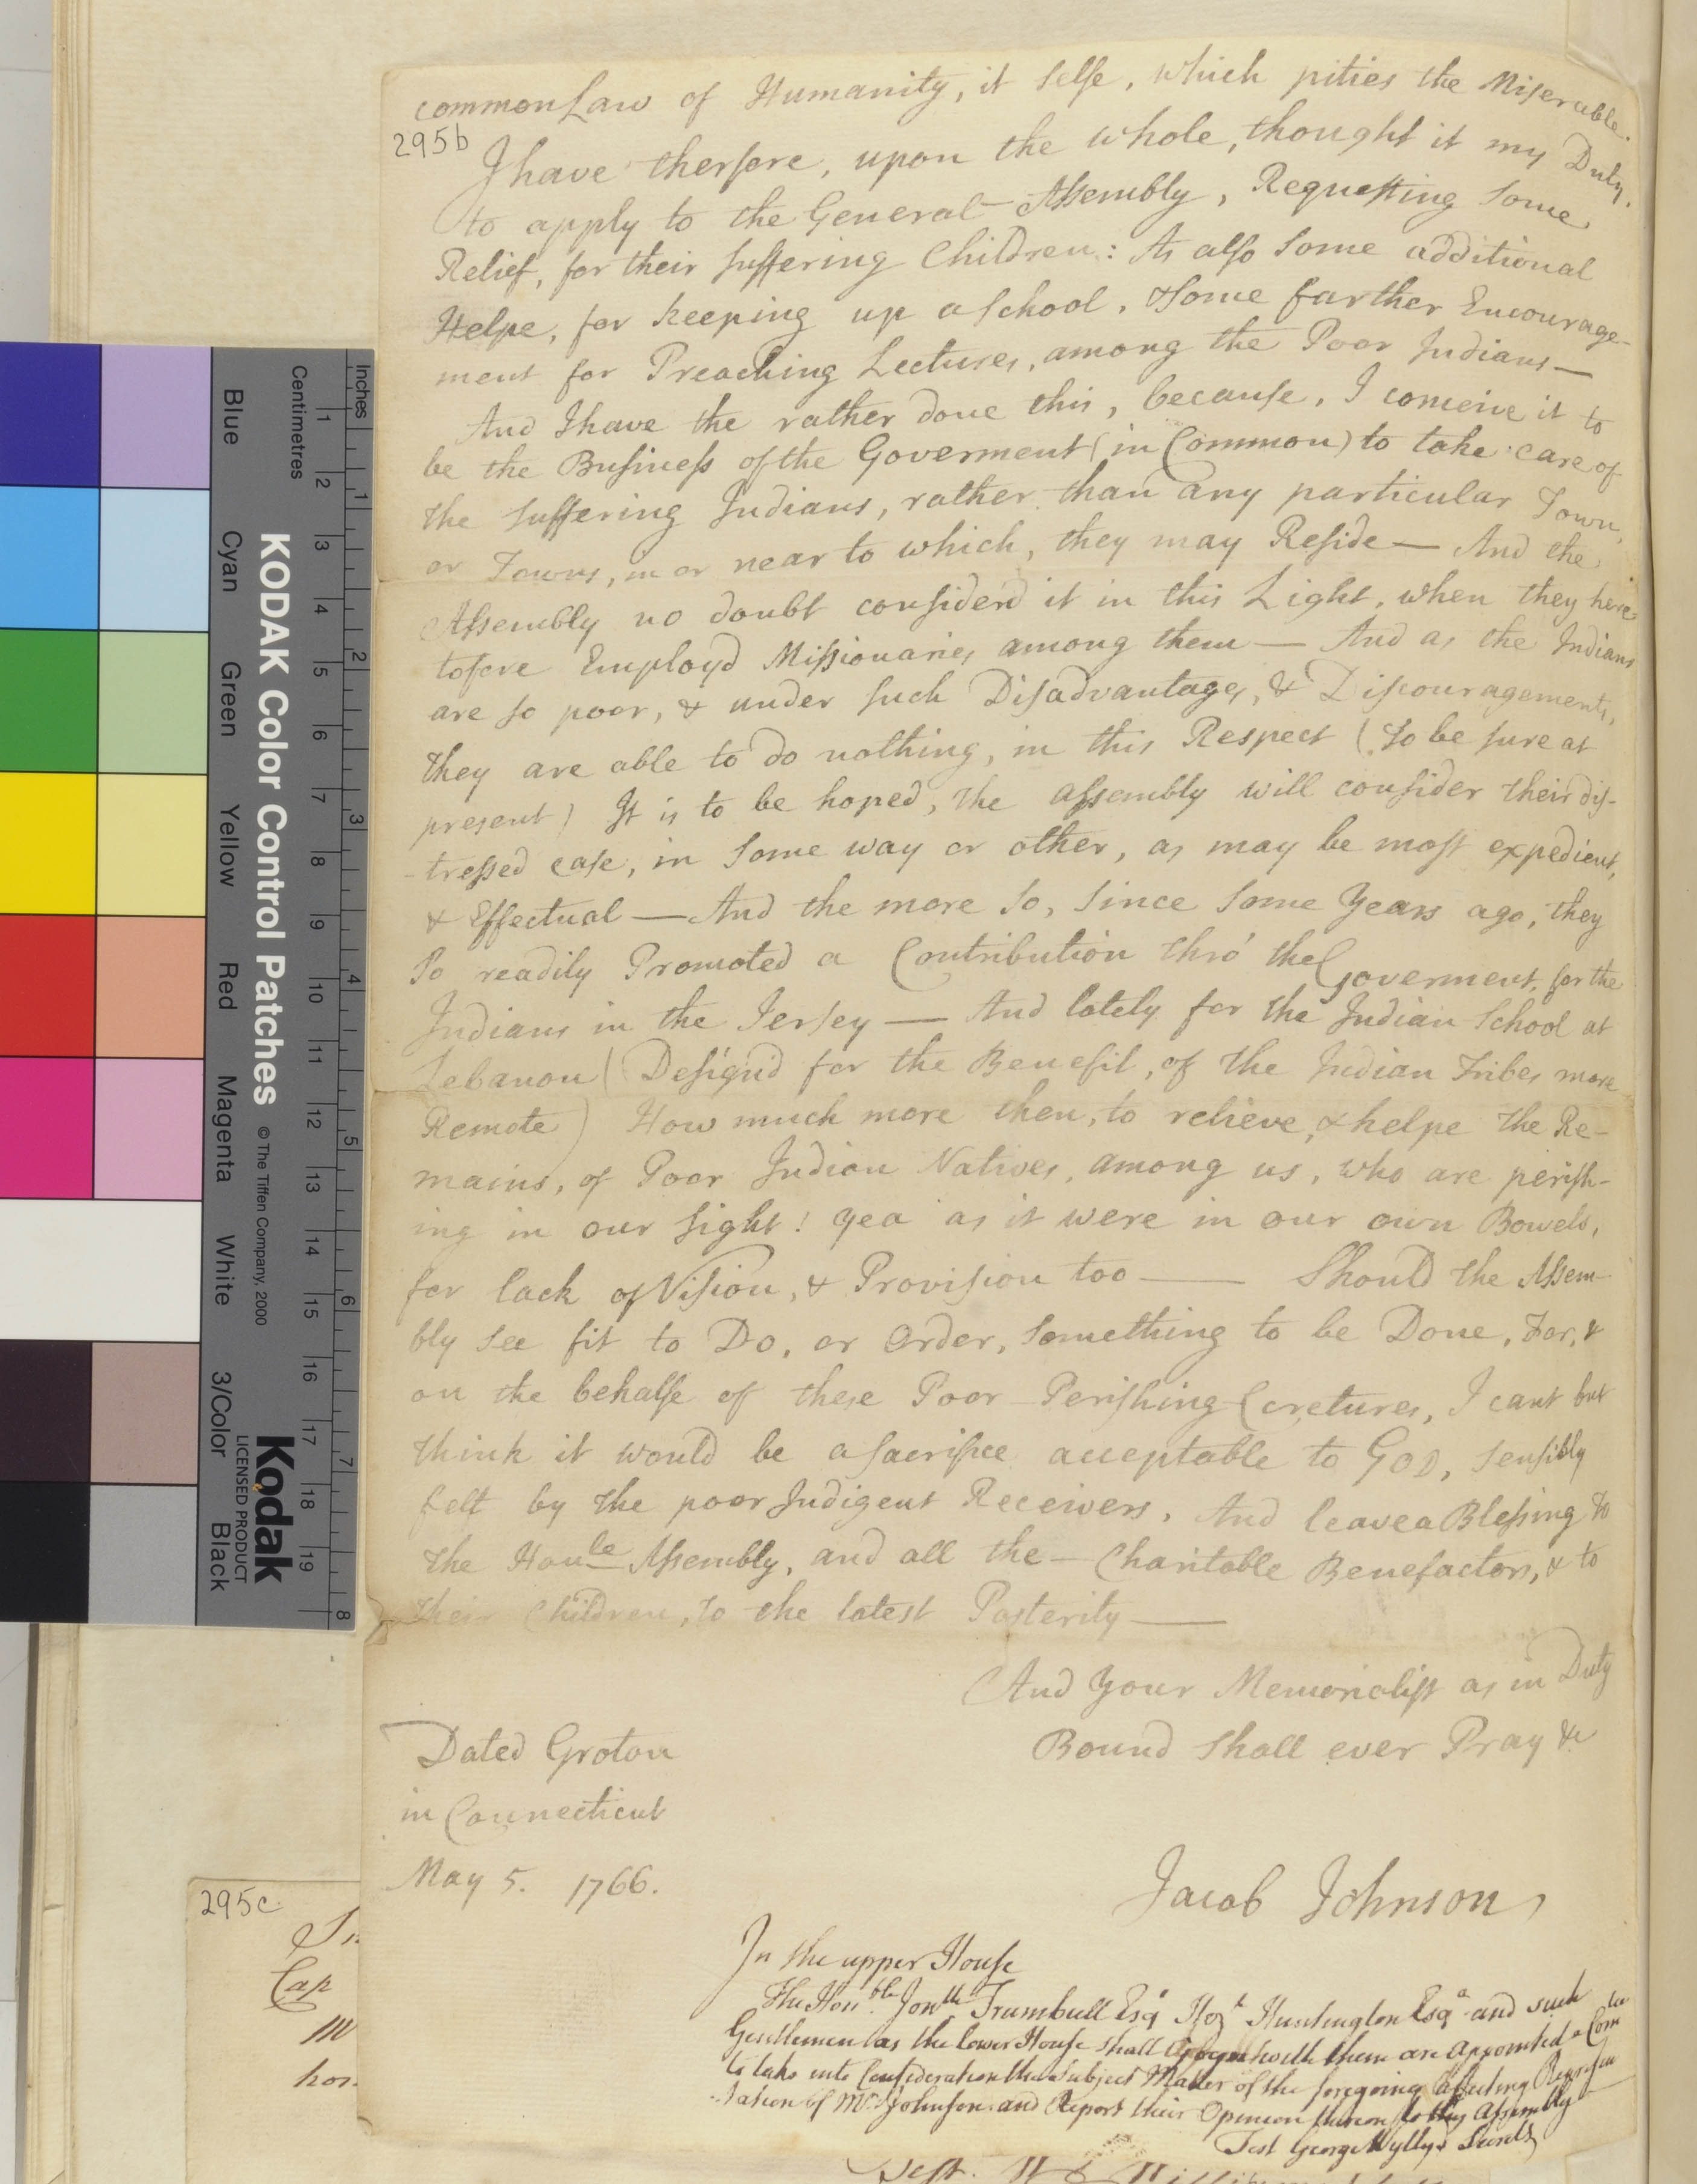 common Law of Humanity, it selfe, which pities the Miserable.
295b
I have therfore, upon the whole, thought it my Duty,
to apply to the General Assembly, Requesting Some
Relief, for their suffering Children: As also Some additional
Helpe, for keeping up a School, & Some farther Encourage-
ment for Preaching Lectures, among the Poor Indians—
And I have the rather done this, because, I conceive it to
be the Business of the Goverment (in Common) to take care of
the suffering Indians, rather than any particular Town,
or Towns, in or near to which, they may Reside— And the
Assembly no doubt considerd it in this Light, when they here-
tofore Employd Missionaries among them— And as the Indians
are so poor, & under such Disadvantages, & Discouragements,
they are able to do nothing, in this Respect (To be sure at
present) It is to be hoped, the assembly will consider their dis-
tressed case, in Some way or other, as may be most expedient,
& Effectual— And the more So, Since Some Years ago, they
So readily Promoted a Contribution thro' the Goverment, for the
Indians in the Jersey— And lately for the Indian School at
Lebanon (Design'd for the Benefit, of the Indian Tribes more
Remote) How much more then, to relieve, & helpe the Re-
mains, of Poor Indian Natives, among us, who are perish-
ing in our sight! yea as it were in our own Bowels,
for lack of Vision, & Provision too— Should the Assem-
bly See fit to Do, or Order, Something to be Done, For, &
on the behalfe of these Poor Perishing Cretures, I cant but
think it would be a Sacrifice acceptable to GOD, Sensibly
felt by the poor Indigent Receivers, And leave a Blessing to
the Honble Assembly, and all the— Charitable Benefactors, & to
their Children, to the latest Posterity—
And Your Memorialist as in Duty
Bound Shall ever Pray &c
Dated Groton
in Connecticut
May 5. 1766.
Jacob Johnson
In the upper House
The Honble Jonth Trumbull Esqr Hez Huntington Esqr and such
Gentlemen as the lower House shall with them are appointed a Comtee
to take into Consideration the Subject Matter of the foregoing affecting Represen
tation of Mr Johnson and Report their Opinion thereon to this Assembly
Test George Wyllys Secrety
295c
Cap
Inches
Centimetres
1 2 3 4 5 6 7 8 9 10 11 12 13 14 15 16 17 18 19
1 2 3 4 5 6 7 8
KODAK Color Control Patches © The Tiffen Company, 2000
Kodak
LICENSED PRODUCT
Blue Cyan Green Yellow Red Magenta White 3/Color Black